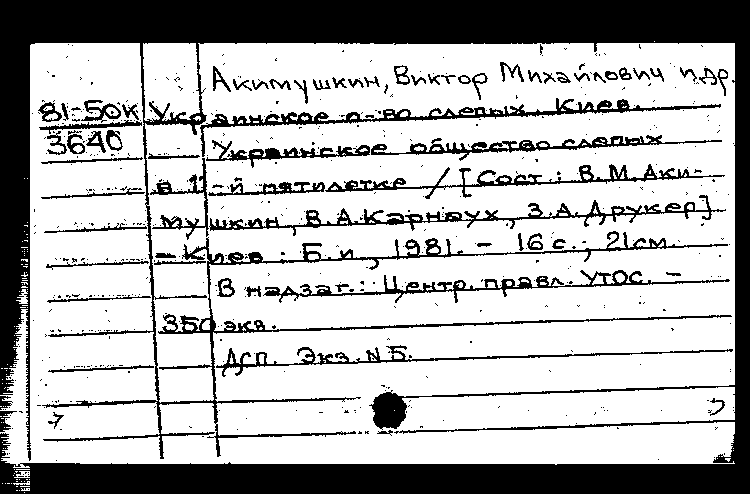 Акимушкин, Виктор Михайлович и др.
81-50К Украинское о-во слепых. Киев.
3640 Украинское общество слепых
в 11-й пятилетке / [Сост.: В.М.Аки-
мушкин, В.А.Карнаух, З.А.Друкер]
- Киев : Б.и, 1981. - 16 с.; 21см.
В надзаг.: Центр. правл. УТОС. -
350 экз.
Дсп. Экз. N Б.